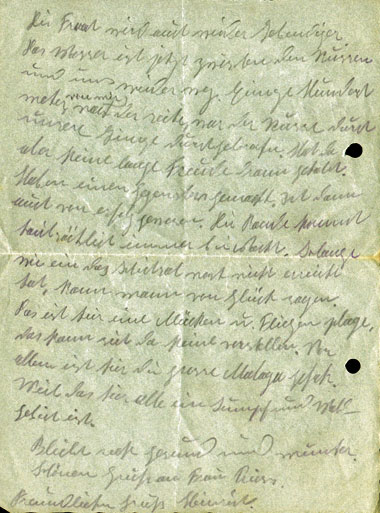 Die Front wird auch wieder lebendiger
Das Wasser ist jetzt zwischen den Russen
und uns wieder weg. Einige Hundert
meter von uns der rechts war der Russe durch
unsere Linge durchgebrochen. Hat be
aber keine lange Freude daran gehabt.
Haben einen gegenstos gemacht, ist dann
auch von erfolg gewesen. Die Bande kommt
hauptsächlich immer bei Nacht. Solange
wie ein das Schiksal noch nicht erreicht
hat, kann mann von Glück sagen.
Das ist hier eine Mücken u. Fliegen plage,
das kann sich da keine vorstellen. Vor
allem ist hier die grosse Malaga gefahr.
Weil das hier alle ein Sumpf und Wald
Gebiet ist.
Bleibt noch gesund und munter.
Schönen Gruß an Frau
Freundlichen Gruß Heinrich.